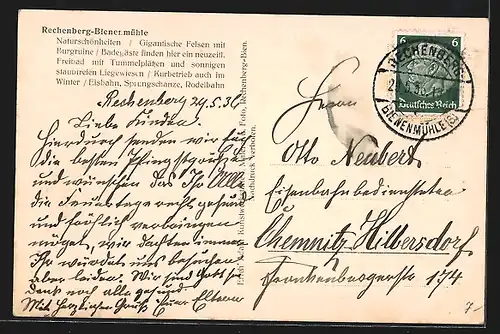 Rechenberg-Bienenmühle
Naturschönheiten / Gigantische Felsen mit
Burgruine / Badegäste finden hier ein neuzeitl.
Freibad mit Tummelplätzen und sonnigen
staubfreien Liegewiesen / Kurbetrieb auch im
Winter / Eisbahn, Sprungschanze, Rodelbahn
Rechenberg 29.5.36
Liebe Kinder,
Hierdurch senden wir Euch
die besten Pfingstgrüße
und wünschen das Ihr Alle
die Feiertage recht gesund
und fröhlich verbringen
möget, wir dachten immer
Ihr würdet uns besuchen
aber leider. Wir sind Gott sei
dank noch alle gesund.
Mit herzlichen Gruß Eure Eltern
Foto, Rechenberg-Bien.
Nachdruck verboten.
6 6
Deutsches Reich
RECHENBERG-
BIENENMÜHLE
Herrn
Otto Neubert
Eisenbahnbediensteter
Chemnitz Hilbersdorf
Frankenbergerstr 174
7-